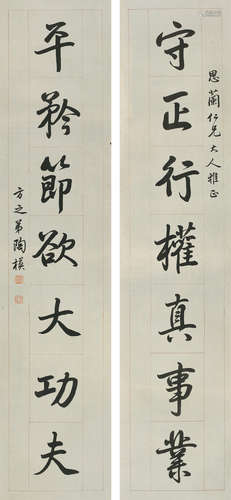 思蘭仁兄大人雅正
守正行權真事業
平矜節欲大功夫
方之弟陶模